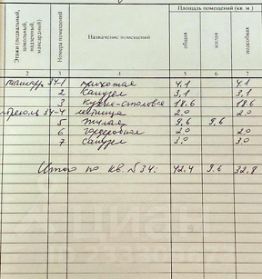 Площадь помещений (кв. м.)
Этажи (подвальный, цокольный, надземный, мансардный)
Номера помещений
Назначение помещений
общая
жилая
подсобная
2 3 4 5 6 7
34-1 прихожая 4,1 4,1
2 Санузел 3,1 3,1
3 Кухня-столовая 18.6 18.6
34-4 лестница 2.0 2.0
5 Жилая 9,6 9,6
6 гардеробная 2.0 2.0
7 Санузел 3.0 3.0
Итого по кв. №34: 42.4 9.6 32.8